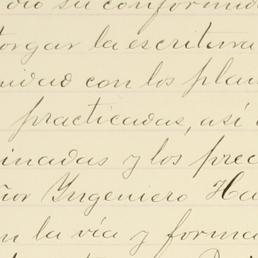 dio su conformida
torgar la escritura
nidad con los plan
practicadas, así c
inadas y los prec
ñor Yngeniero Ha
n la vía y forma